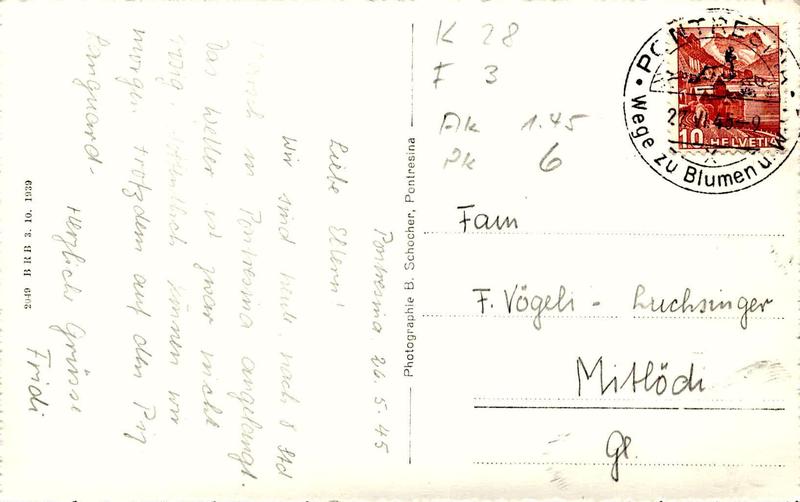 Pontresina 26.5.45
Liebe Eltern!
Wir sind heute nach 8 Std
Marsch in Pontresina angelangt.
Das Wetter ist zwar nicht
rosig, hoffentlich können wir
morgen trotzdem auf den Piz
Languard.
Herzliche Grüsse
Fridi
2949 BRB 3.10. 1939
Photographie B. Schocher, Pontresina
K 28
F 3
Ak 1.45
Pk 6
PONTRESINA
27.VI.45
Wege zu Blumen u.
10 HELVETIA
Fam
F. Vögeli - Luchsinger
Mitlödi
Gl.